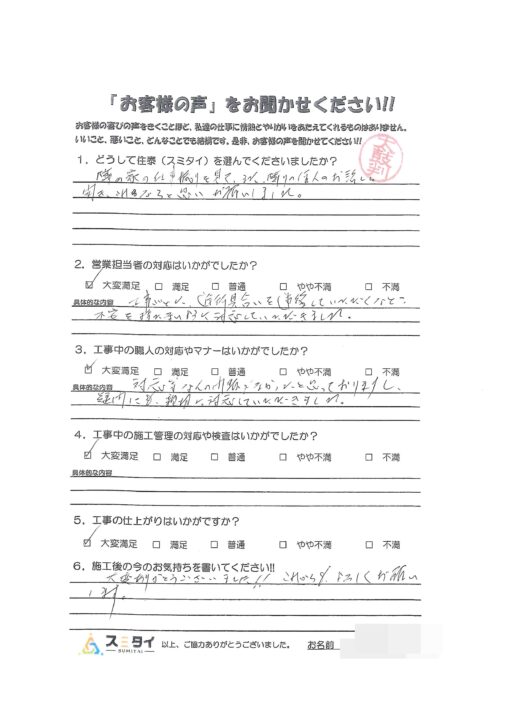 「お客様の声」をお聞かせください!!
お客様の喜びの声をきくことほど、私達の仕事に情熱とやりがいをあたえてくれるものはありません。
いいこと、悪いこと、どんなことでも結構です。是非、お客様の声を聞かせてください!!
太鼓判
1．どうして住泰（スミタイ）を選んでくださいましたか？
隣の家の仕事振りを見て、又、隣りの住人のお話しも
聞き、これならと思いお願いしました。
2．営業担当者の対応はいかがでしたか？
☑ 大変満足 □ 満足 □ 普通 □ やや不満 □ 不満
具体的な内容
不安を持たない様に対応していただきました。
3．工事中の職人の対応やマナーはいかがでしたか？
☑ 大変満足 □ 満足 □ 普通 □ やや不満 □ 不満
具体的な内容 対応 と思っておりますし、
質問にも、親切に対応していただきました。
4．工事中の施工管理の対応や検査はいかがでしたか？
☑ 大変満足 □ 満足 □ 普通 □ やや不満 □ 不満
具体的な内容
5．工事の仕上がりはいかがですか？
☑ 大変満足 □ 満足 □ 普通 □ やや不満 □ 不満
6．施工後の今のお気持ちを書いてください!!
大変ありがとうございました!! これからも よろしくお願い
します。
スミタイ 以上、ご協力ありがとうございました。 お名前
SUMITAI